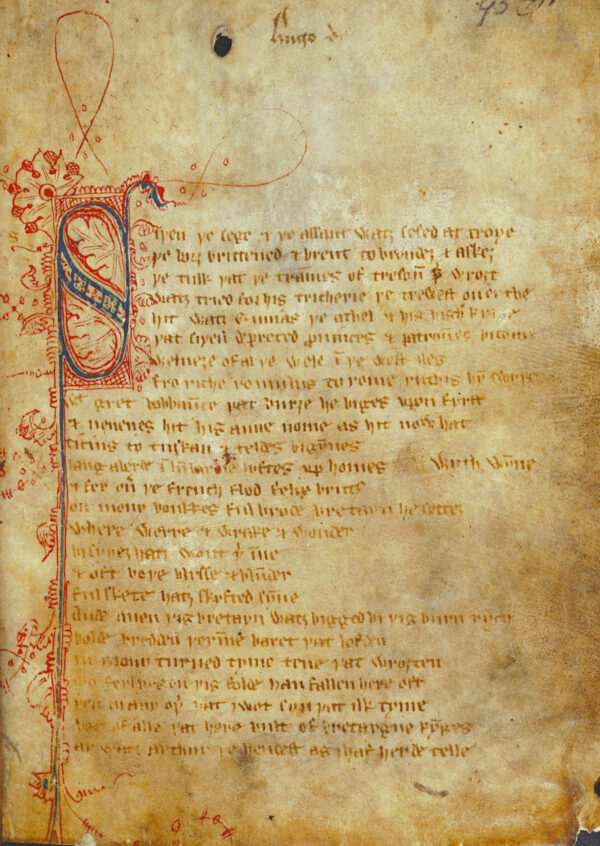 Hugo de
95
Siþen þe sege & þe assaut watz sesed at troye
þe borȝ brittened & brent to brondez & askez
þe tulk þat þe trāmes of tresoū þ̄ wroȝt
watz tried for his tricherie þe trewest on erthe
hit watz ennias þe athel & his highe kynde
þat siþen depreced prouinces & patroūes bicome
welneȝe of al þe wele ī þe west iles
fro riche romulus to rome ricchis hȳ swyþe
wt gret bobbaūce þat burȝe he biges vpon fyrst
& neuenes hit his aune nome as hit now hat
ticius to tuskan & teldes bigȳnes
langaberde lyftes vp homes wyth wȳne
& fer ou̅ þe french flod felix brutus
on mony bonkkes ful brode bretayn he settez
where werre & wrake & wonder
bi syþez hatz wont þ̄īne
& oft boþe blysse & blūder
ful skete hatz skyfted sȳne
Ande quen þis bretayn watz bigged bi þis burn rych
bolde bredden þerīne baret þat lofden
in mony turned tyme tene þat wroȝten
mo ferlyes on þis folde han fallen here oft
þen in any oþ̄ þat I wot syn þat ilk tyme
bot of alle þat here bult of bretaygne kȳges
ay watz arthur þe hendest as i haf herde telle